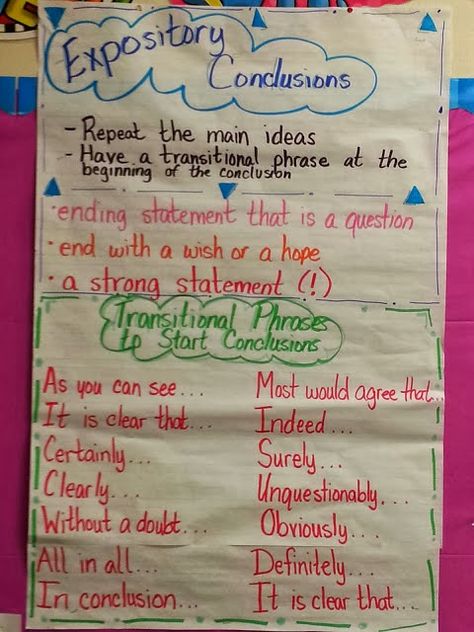 Expository
Conclusions
- Repeat the main ideas
- Have a transitional phrase at the
beginning of the conclusion
• ending statement that is a question
• end with a wish or a hope
• a strong statement (!)
Transitional Phrases
to Start Conclusions
As you can see...
It is clear that...
Certainly...
Clearly...
Without a doubt...
All in all...
In conclusion...
Most would agree that...
Indeed...
Surely...
Unquestionably...
Obviously...
Definitely...
It is clear that...